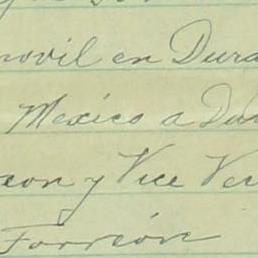 novil en Dura
Mexico a Du
eon y Vice Ver
Torreón